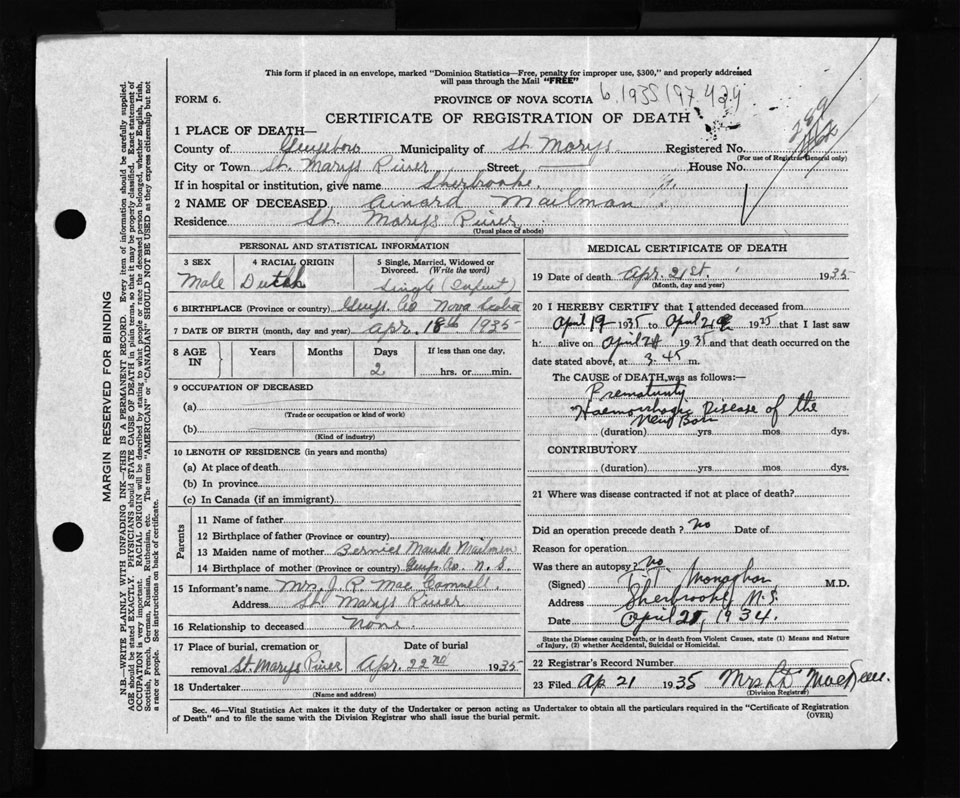 This form if placed in an envelope, marked "Dominion Statistics—Free, penalty for improper use, $300," and properly addressed
will pass through the Mail "FREE"
FORM 6.
PROVINCE OF NOVA SCOTIA
CERTIFICATE OF REGISTRATION OF DEATH
1 PLACE OF DEATH—
County of Guysboro Municipality of St. Marys. Registered No.
(For use of Registrar General only)
City or Town St. Marys River Street House No.
If in hospital or institution, give name Sherbrooke.
2 NAME OF DECEASED Ainard Mailman
Residence St. Marys River
(Usual place of abode)
PERSONAL AND STATISTICAL INFORMATION
3 SEX Male
4 RACIAL ORIGIN Dutch
5 Single, Married, Widowed or Divorced. (Write the word) Single (Infant)
6 BIRTHPLACE (Province or country) Guys. Co Nova Scotia
7 DATE OF BIRTH (month, day and year) Apr. 18th 1935
8 AGE IN Years Months Days 2 If less than one day, hrs. or min.
9 OCCUPATION OF DECEASED
(a)
(Trade or occupation or kind of work)
(b)
(Kind of industry)
10 LENGTH OF RESIDENCE (in years and months)
(a) At place of death
(b) In province
(c) In Canada (if an immigrant)
Parents
11 Name of father
12 Birthplace of father (Province or country)
13 Maiden name of mother Bernice Maude Mailman
14 Birthplace of mother (Province or country) Guys. Co. N. S.
15 Informant's name Mrs. J. R. Mac Connell
Address St. Marys River
16 Relationship to deceased None
17 Place of burial, cremation or removal St. Marys River Date of burial Apr. 22nd 1935
18 Undertaker
(Name and address)
MEDICAL CERTIFICATE OF DEATH
19 Date of death Apr. 21st. 1935
(Month, day and year)
20 I HEREBY CERTIFY that I attended deceased from
April 19 1935 to April 1935 that I last saw
h alive on April 1935 and that death occurred on the
date stated above, at 3.45 m.
The CAUSE OF DEATH was as follows:—
Prematurity
Haemorrhagic Disease of the
New Born
(duration) yrs mos dys.
CONTRIBUTORY
(duration) yrs. mos dys.
21 Where was disease contracted if not at place of death?
Did an operation precede death? No Date of
Reason for operation
Was there an autopsy? No.
(Signed) Monaghan M.D.
Address Sherbrooke, N.S.
Date April 1934.
State the Disease causing Death, or in death from Violent Causes, state (1) Means and Nature
of Injury, (2) whether Accidental, Suicidal or Homicidal.
22 Registrar's Record Number
23 Filed Ap 21 1935 Mrs
(Division Registrar)
Sec. 46—Vital Statistics Act makes it the duty of the Undertaker or person acting as Undertaker to obtain all the particulars required in the "Certificate of Registration
of Death" and to file the same with the Division Registrar who shall issue the burial permit.
(OVER)
MARGIN RESERVED FOR BINDING
N.B.—WRITE PLAINLY WITH UNFADING INK—THIS IS A PERMANENT RECORD. Every item of information should be carefully supplied.
AGE should be stated EXACTLY. PHYSICIANS should STATE CAUSE OF DEATH in plain terms, so that it may be properly classified. Exact statement of
OCCUPATION is very important. RACIAL ORIGIN will be described by stating to what people or race the deceased person belonged, whether English, Irish,
Scottish, French, German, Russian, Ruthenian, etc. The terms "AMERICAN" or "CANADIAN" SHOULD NOT BE USED as they express citizenship but not
a race or people. See instructions on back of certificate.